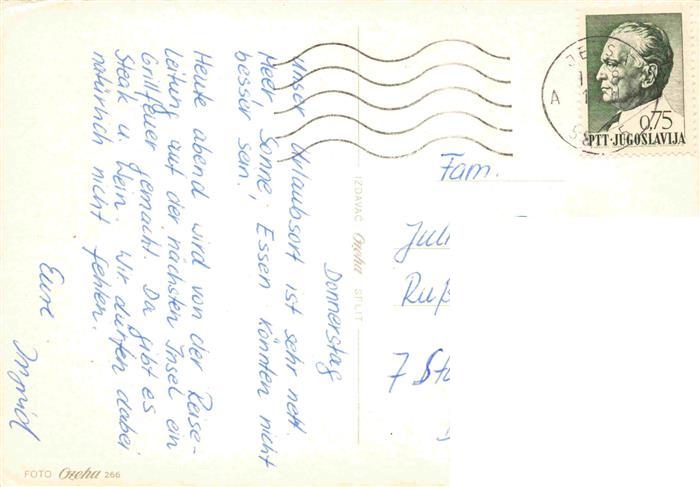 Donnerstag
Unser Urlaubsort ist sehr nett.
Meer, Sonne, Essen könnten nicht
besser sein.
Heute abend wird von der Reise-
leitung auf der nächsten Insel ein
Grillfeuer gemacht. Da gibt es
Steak u. Wein. Wir dürfen dabei
natürlich nicht fehlen.
Eure Ingrid
IZDAVAČ Ozeha SPLIT
Fam.
7
0.75
PTT·JUGOSLAVIJA
A
FOTO Ozeha 266